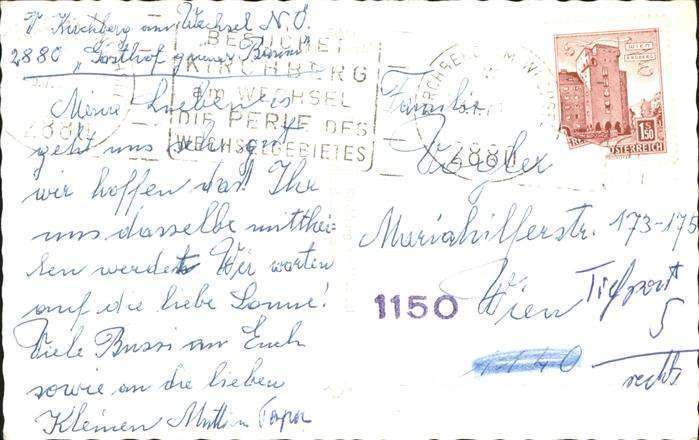 Kirchberg am Wechsel N.Ö.
2880 "Gasthof grüner
Meine Lieben es
geht uns sehr gut
wir hoffen das Ihr
uns dasselbe mitthei-
len werdet Wir warten
auf die liebe Sonne!
Viele Bussi an Euch
sowie an die lieben
Kleinen Mutti u Papa
BESUCHET
KIRCHBERG
am WECHSEL
DIE PERLE DES
WECHSELGEBIETES
2880
2880
WIEN
ERDBERG
1S50
ÖSTERREICH
Familie
Mariahilferstr. 173-175
1150 Wien
1140
Tiefpart
5
rechts